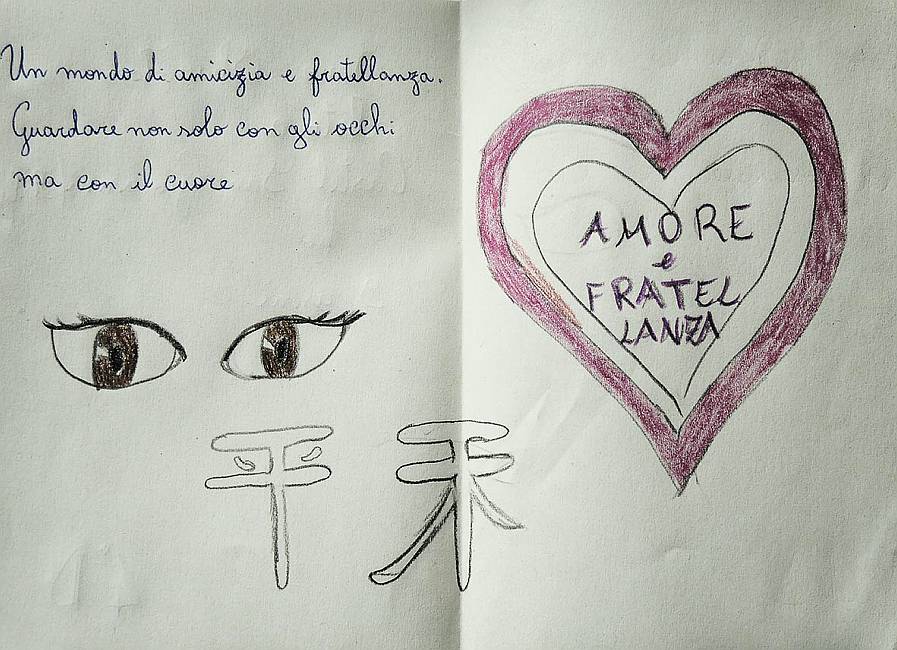 Un mondo di amicizia e fratellanza.
Guardare non solo con gli occhi
ma con il cuore
AMORE
e
FRATEL
LANZA
平禾